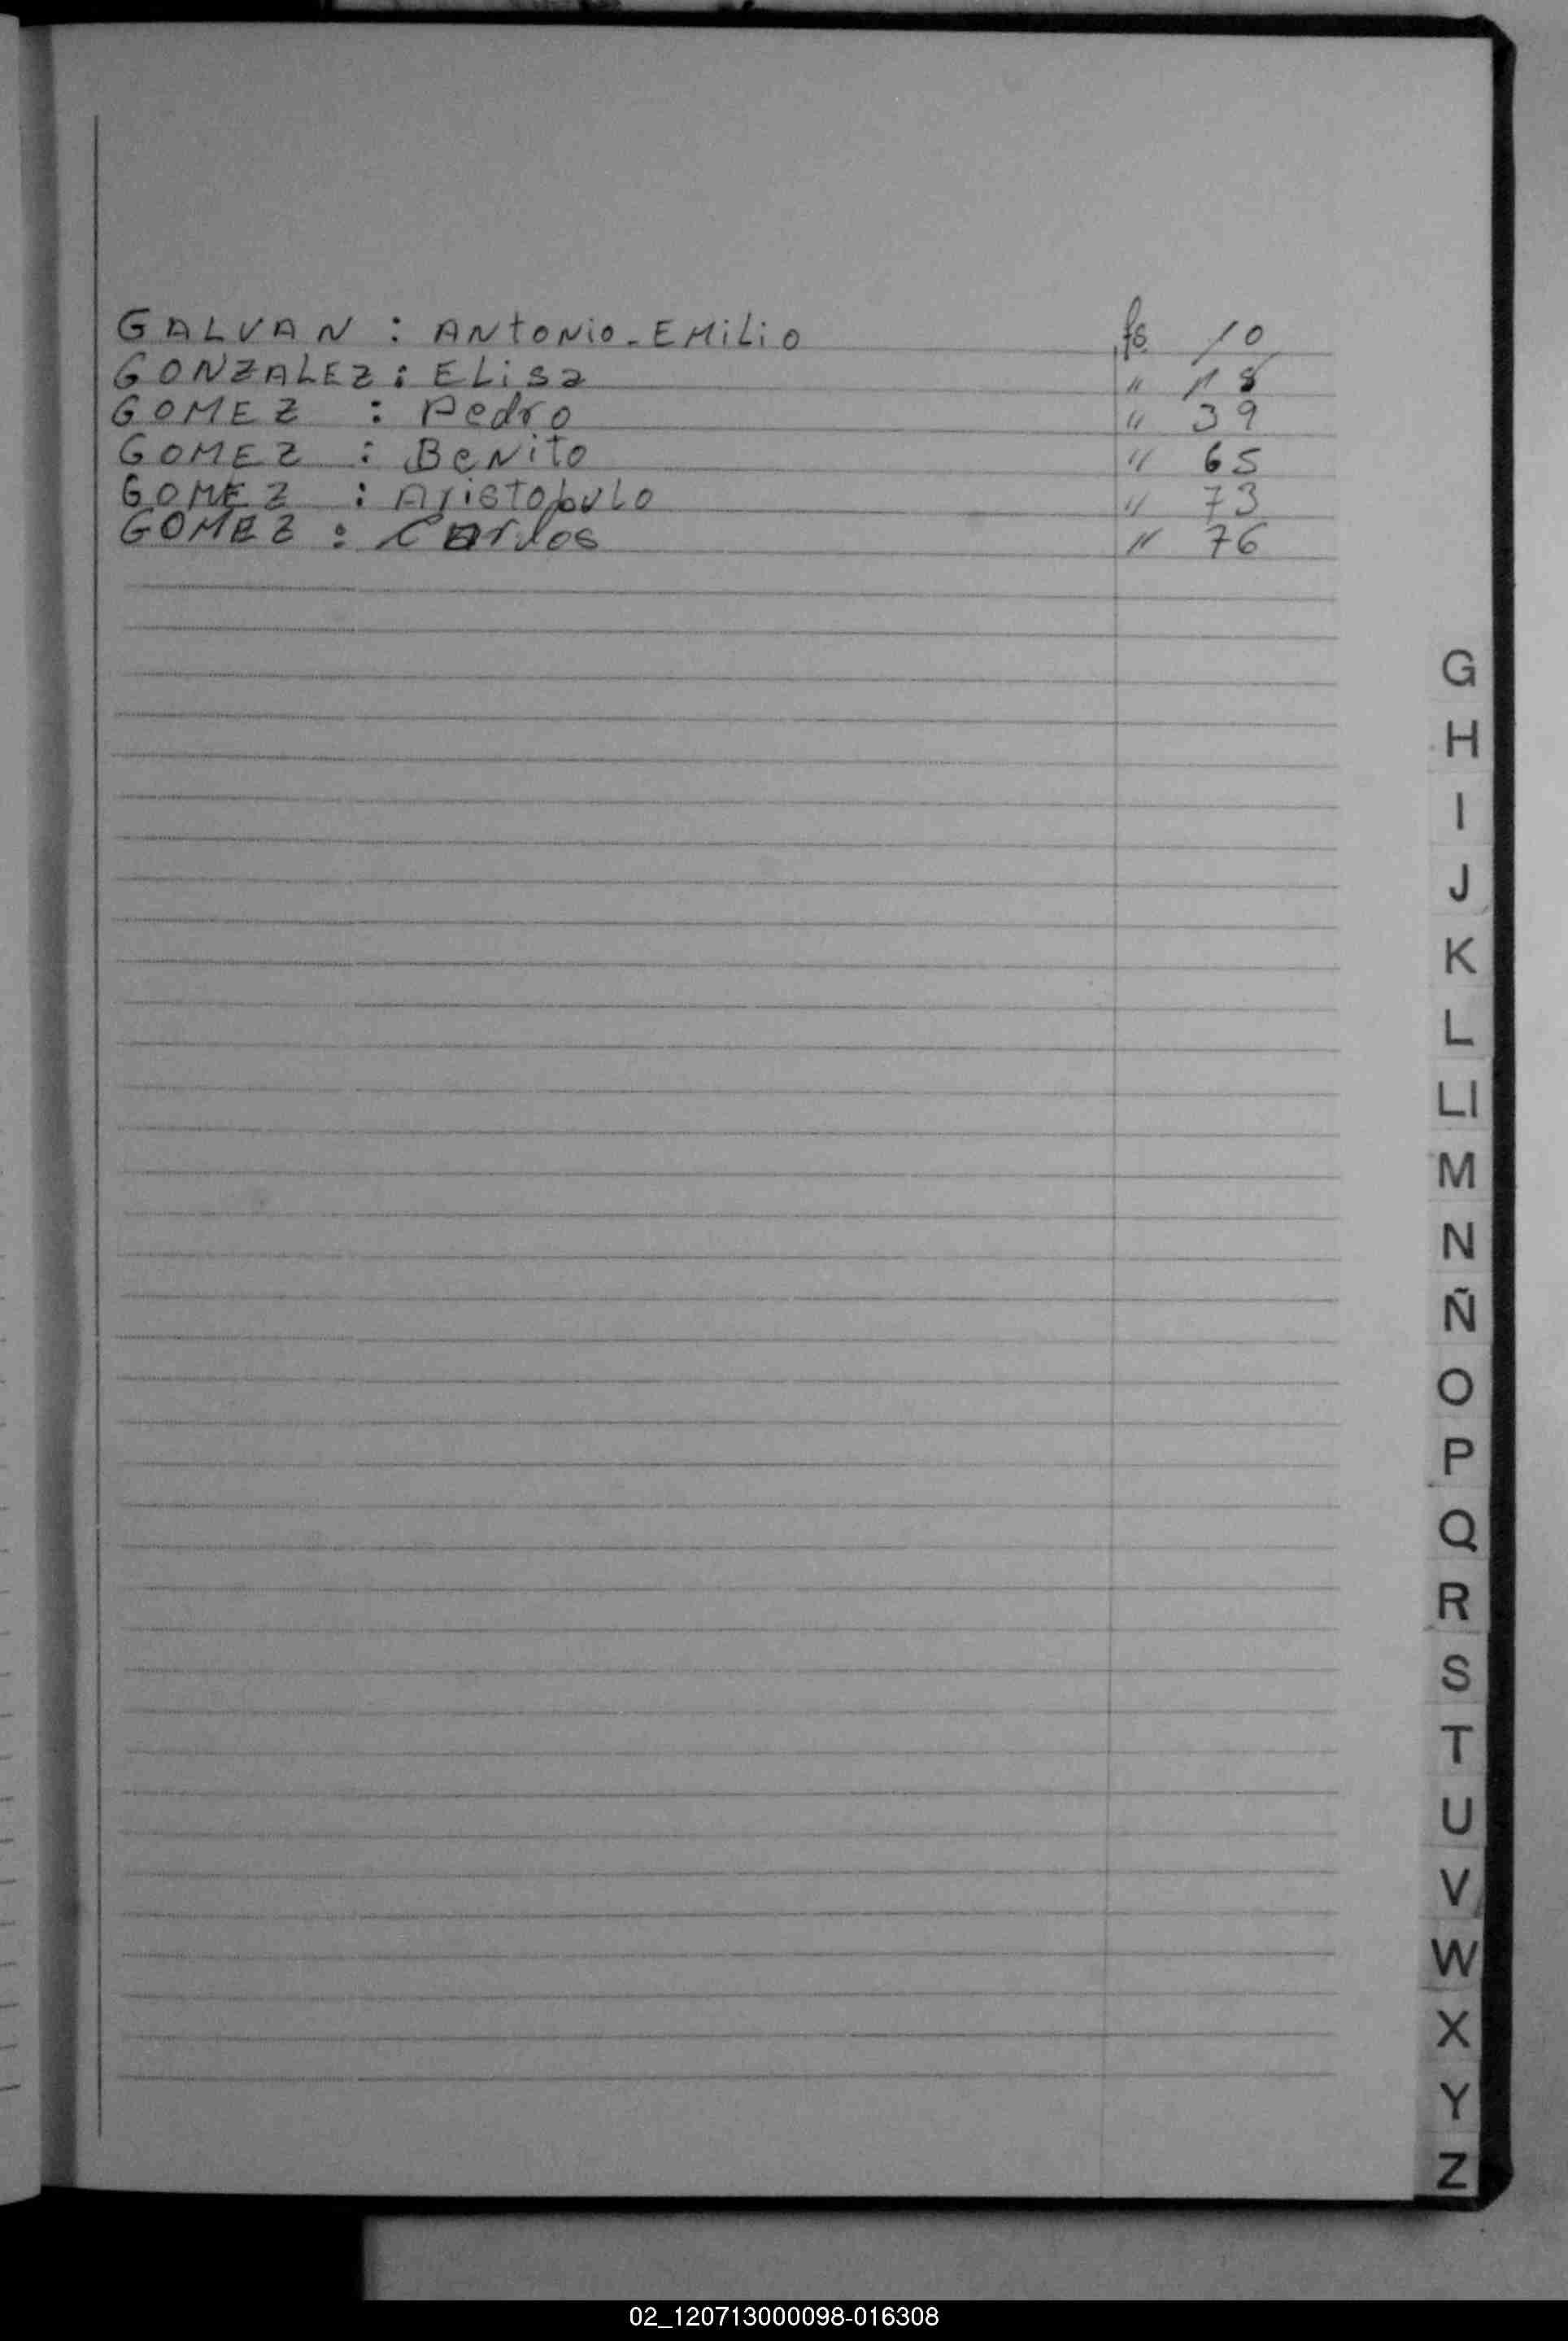 GALVAN : ANtoNio-EMiLio fs. 10
GONZALEZ : ELisa " 18
GOMEZ : Pedro " 39
GOMEZ : BeNito " 65
GOMEZ : AristobuLo " 73
GOMEZ : Carlos " 76
G
H
I
J
K
L
Ll
M
N
Ñ
O
P
Q
R
S
T
U
V
W
X
Y
Z
02_120713000098-016308